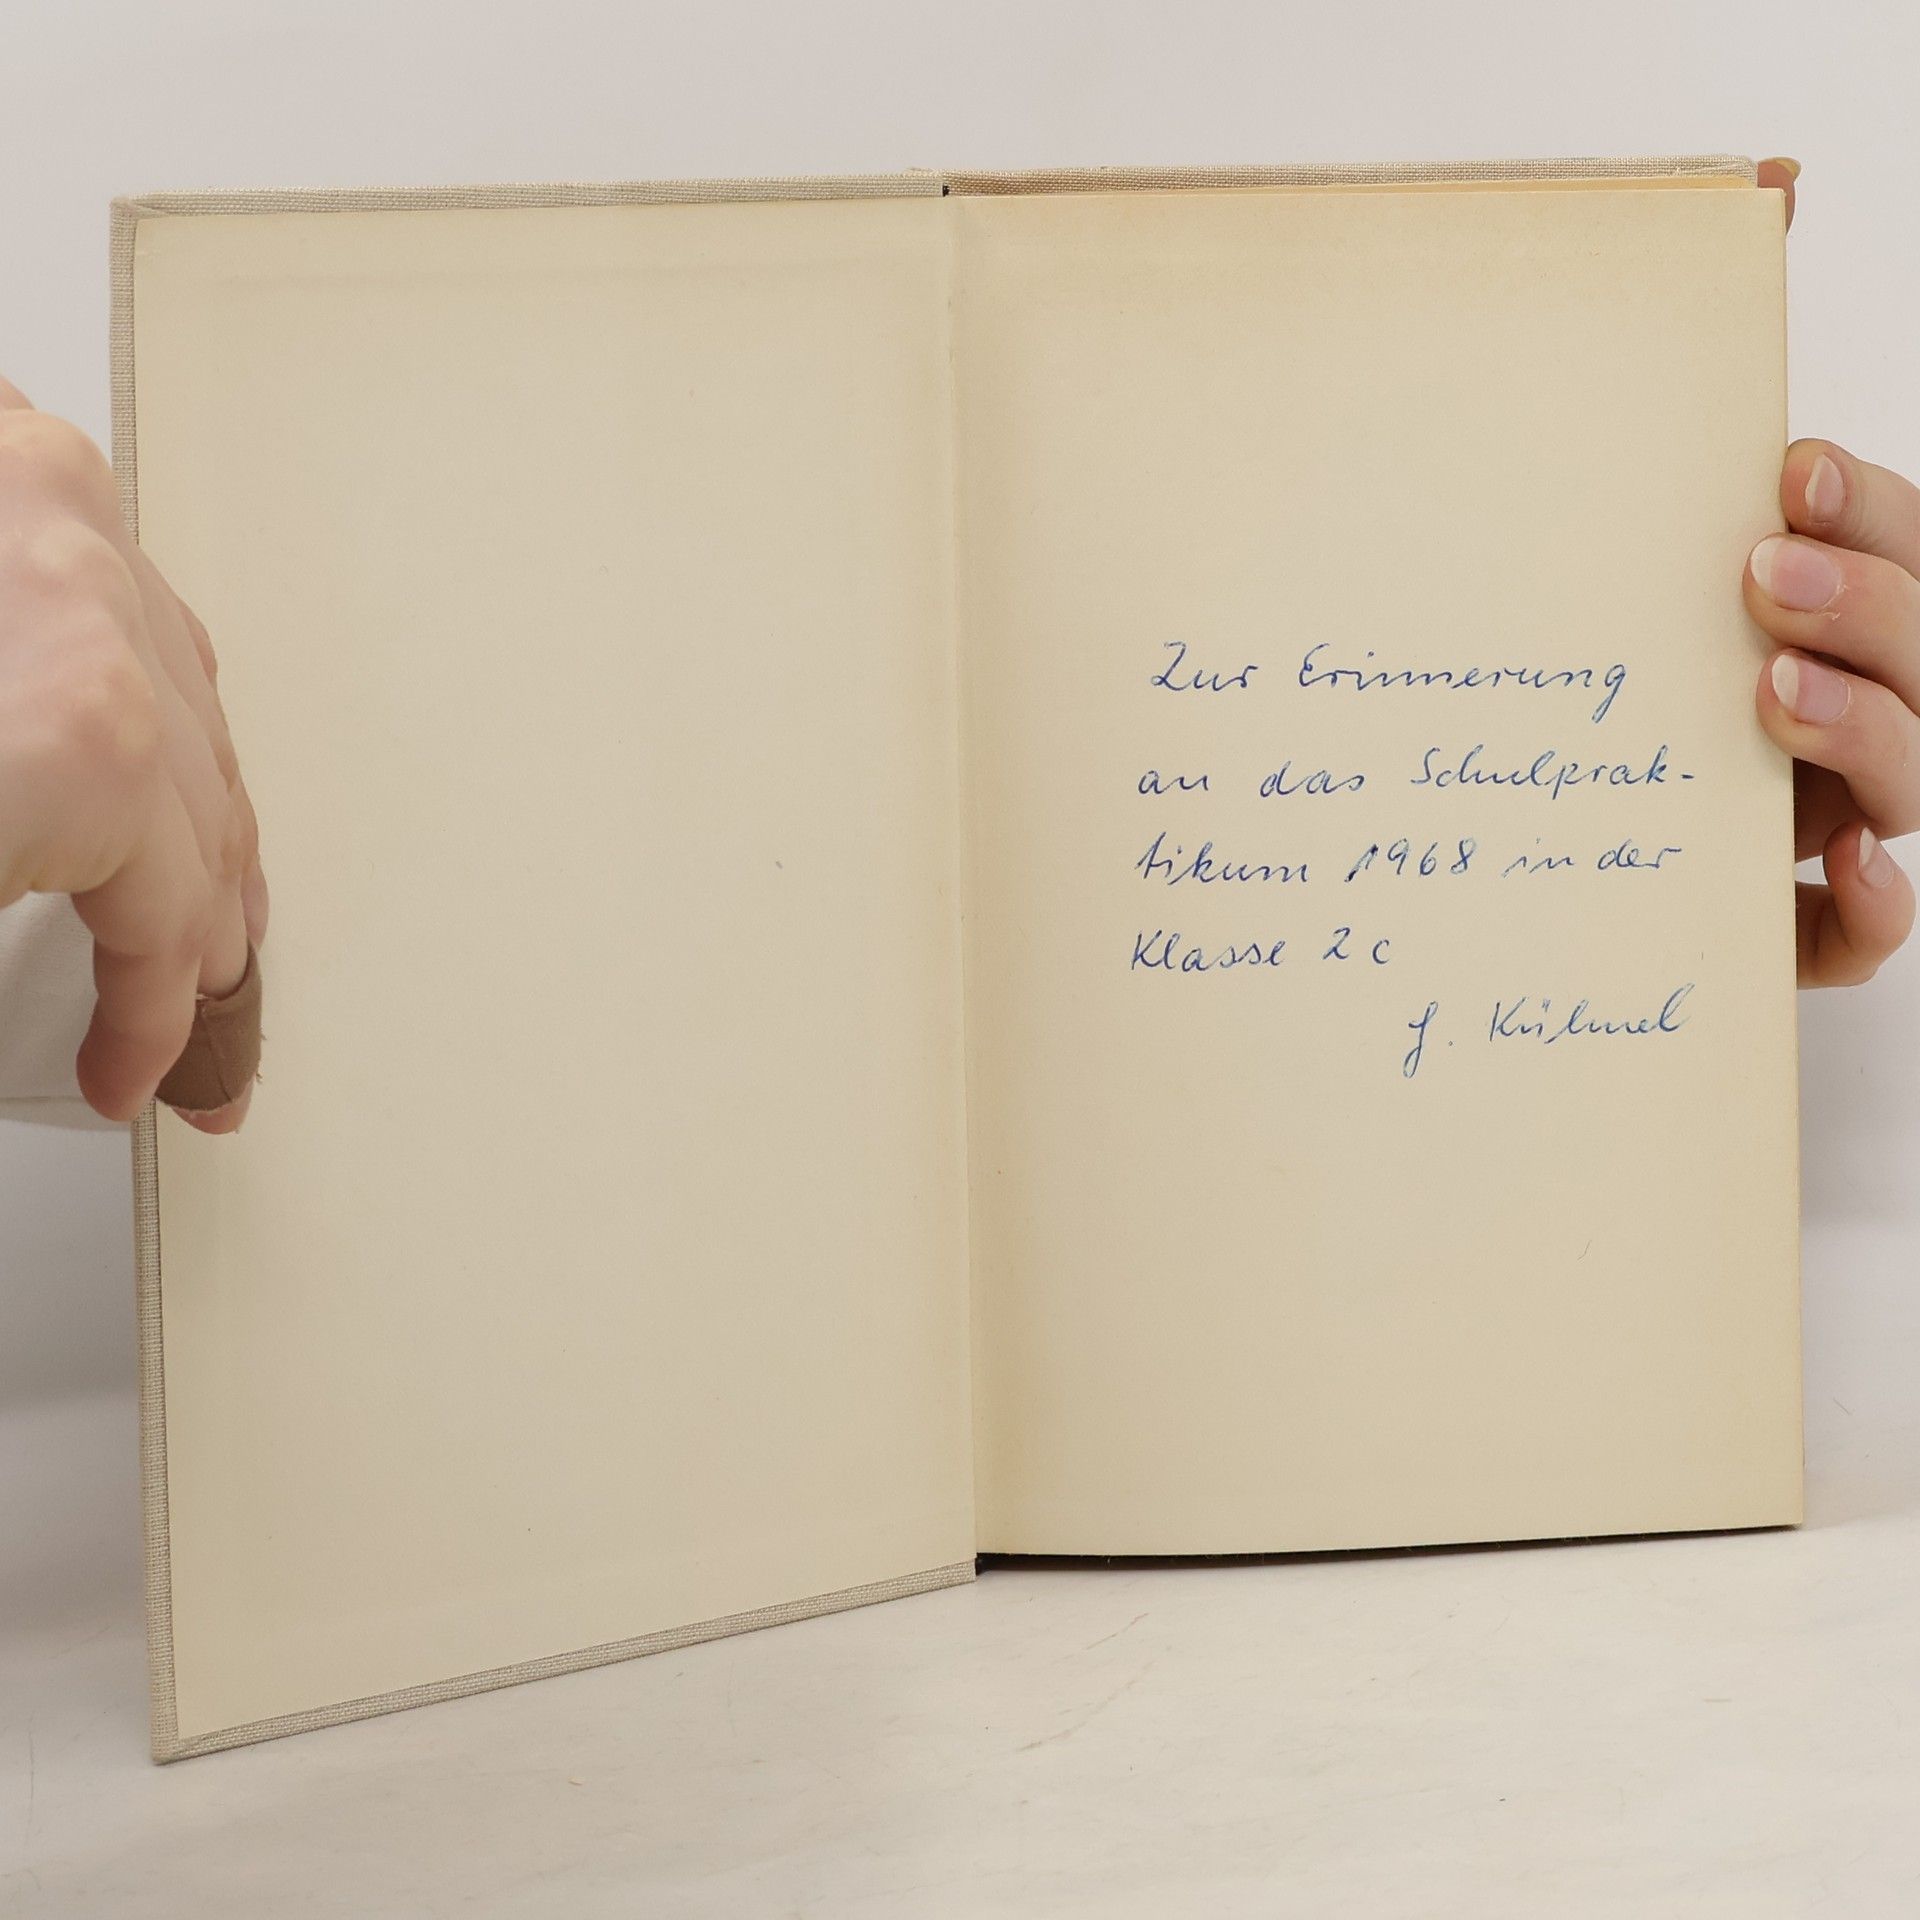 Zur Erinnerung
an das Schulprak-
tikum 1968 in der
Klasse 2c
Kühnel